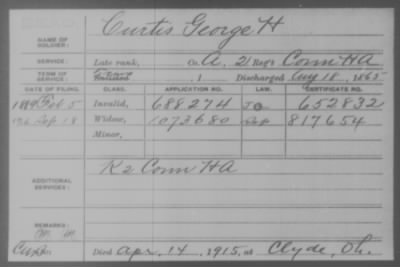 NAME OF SOLDIER: Curtis George H
SERVICE: Late rank, Co. A, 21 Reg't Conn H A
TERM OF SERVICE: Enlisted , 1 Discharged Aug 18, 1865
DATE OF FILING. CLASS. APPLICATION NO. LAW. CERTIFICATE NO.
Feb 5 Invalid, 688274 652832
18 Widow, 1073680 817654
Minor,
ADDITIONAL SERVICES: K 2 Conn H A
REMARKS:
Died Apr. 14, 1915, at Clyde, Oh.